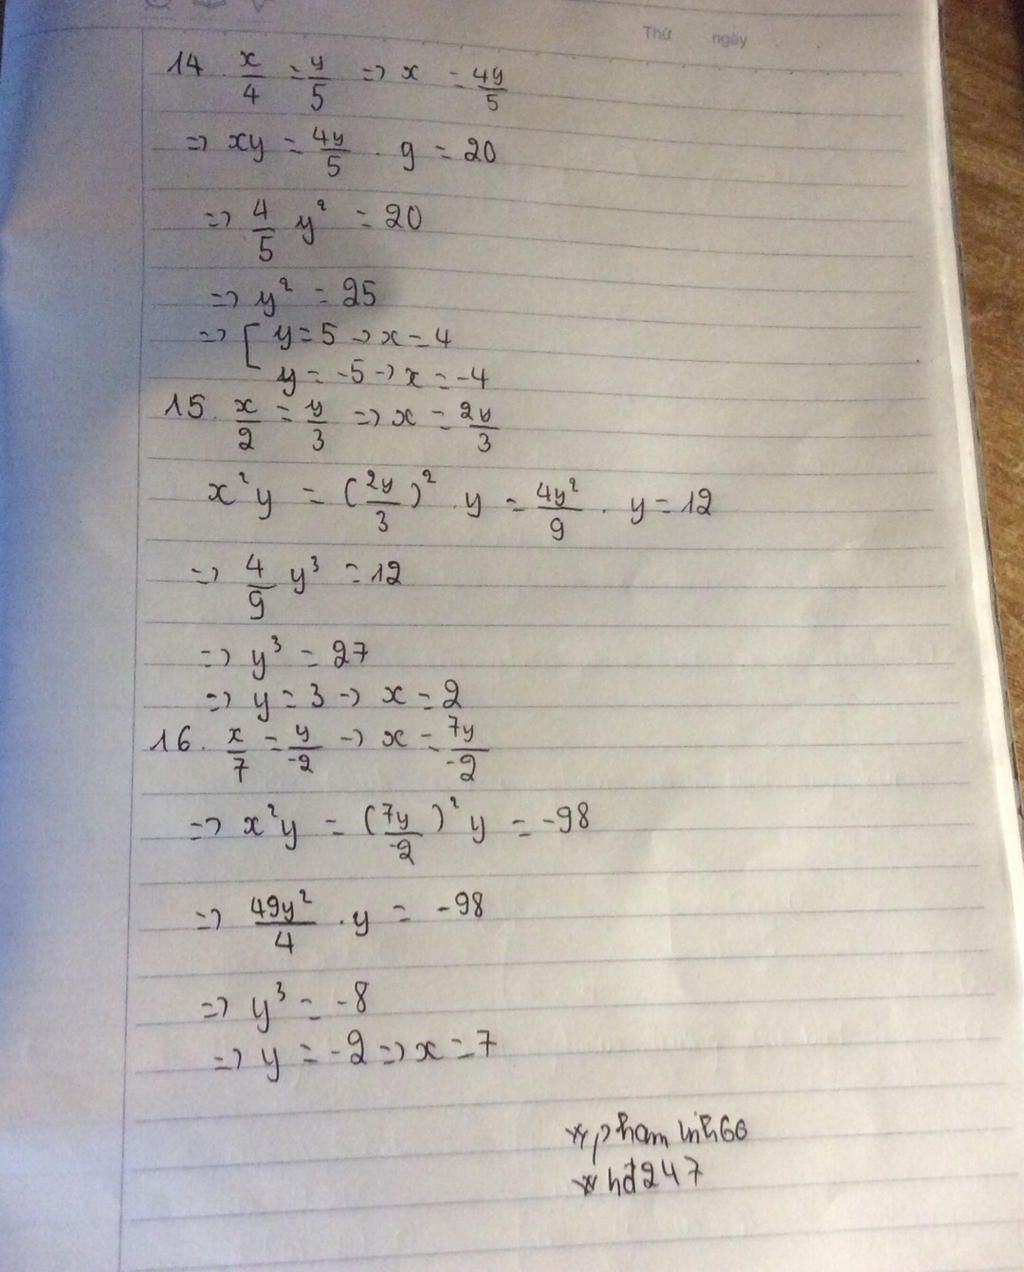 Thứ ngày
14. x/4 = y/5 => x = 4y/5
=> xy = 4y/5 . y = 20
=> 4/5 y² = 20
=> y² = 25
=> [ y = 5 -> x = 4
y = -5 -> x = -4
15. x/2 = y/3 => x = 2y/3
x²y = (2y/3)² . y = 4y²/9 . y = 12
=> 4/9 y³ = 12
=> y³ = 27
=> y = 3 -> x = 2
16. x/7 = y/-2 -> x = 7y/-2
=> x²y = (7y/-2)² y = -98
=> 49y²/4 . y = -98
=> y³ = -8
=> y = -2 => x = 7
* pham linh66
* hđ247